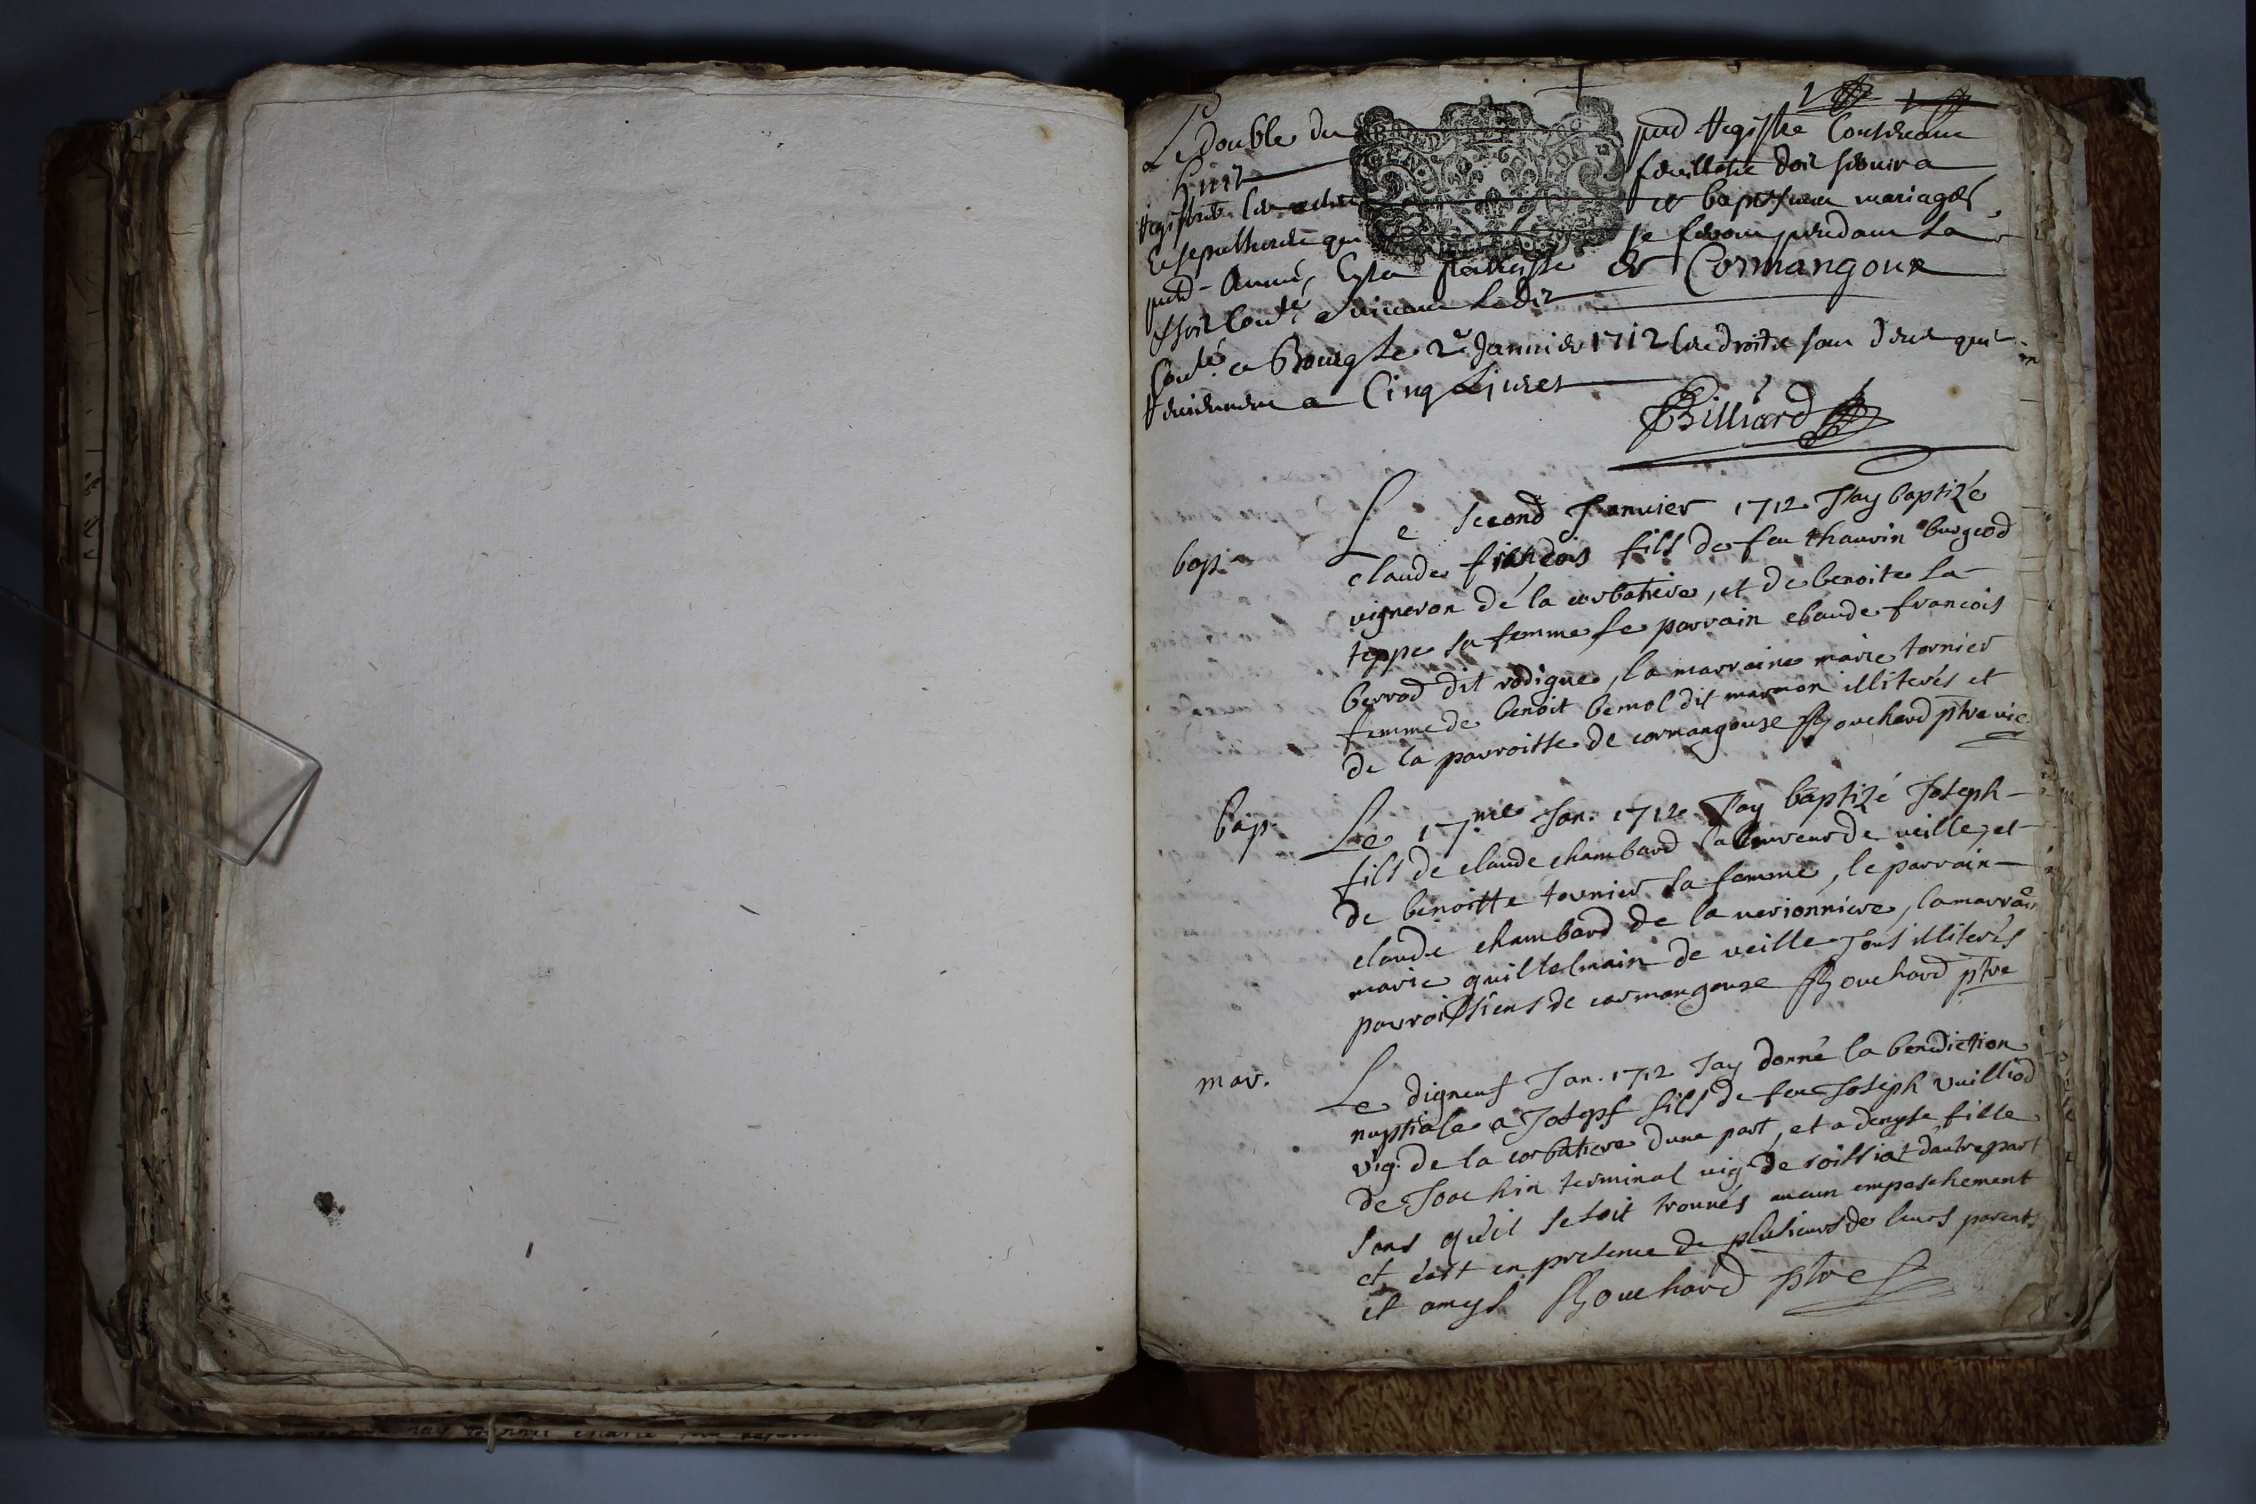 Le double du pnt Registre Contenant
huit feuillets doit servir a
Registrer les actes de baptesmes mariages
Et sepultures qui se feront pendant La
pnte Année En la parroisse de Cormangoux
Cotté a Bourg Le 2e Janvier 1712 les droits sont deus qui
Reviennent a Cinq Livres
Billiard
bap.
Le second Janvier 1712 Jay baptizé
claude francois fils de feu thauvin burgeod
vigneron de la corbatiere, et de benoite la
teppe sa femme le parrain claude francois
berrod dit rodigue, la marraine marie tornier
femme de benoit bemol dit marmon illiterés et
de la parroisse de cormangouse Bouchard ptre vic.
bap.
Le 17me Jan. 1712 Jay baptizé Joseph
fils de claude chambard laboureur de veille, et
de benoitte tornier sa femme, le parrain
claude chambard de la verionniere, la marraine
marie guillelmain de veille tous illiterés
parroissiens de cormangouse Bouchard ptre
mar.
Le digneuf Jan. 1712 Jay donné la benediction
nuptiale a Josepf fils de feu Joseph vuilliod
vig. de la corbatiere dune part, et a denyse fille
de Joachin terminal vig. de roissiat dautre part
sans qu'il se soit trouués aucun empeschement
et ca est en presence de plusieurs de leurs parents
et amys Bouchard ptre